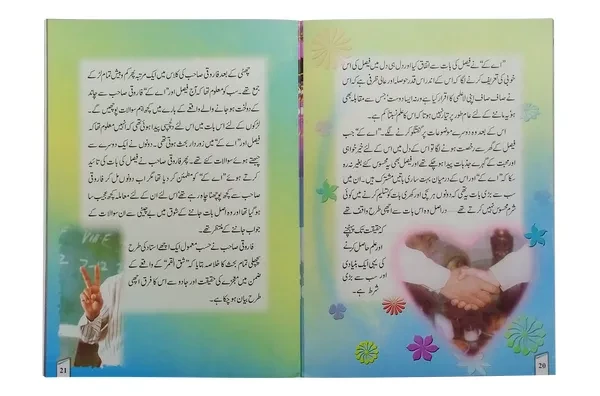 ”اے کے“ نے فیصل کی بات سے اتفاق کیا اور دل ہی دل میں فیصل کی اس
خوبی کی تعریف کرنے لگا کہ اس کے اندر اس قدر حوصلہ اور عالی ظرفی ہے کہ اس
نے صاف صاف اپنی لاعلمی کا اقرار کیا ہے ورنہ ایسا دوست جس سے مقابلہ بھی
ہو یہ ماننے کے لئے عام طور پر تیار نہیں ہوتا کہ اس کا علم کم ہے۔
اس کے بعد وہ دوسرے موضوعات پر گفتگو کرنے لگے۔ ”اے کے“ جب
فیصل کے گھر سے رخصت ہونے لگا تو اس کے دل میں اس کے لئے خیر خواہی
اور محبت کے گہرے جذبات پیدا ہو چکے تھے اور فیصل بھی یہ محسوس کئے بغیر نہ رہ
سکا کہ ”اے کے“ اور اس کے درمیان بہت ساری باتیں مشترک ہیں۔ ان میں
سب سے بڑی بات یہ تھی کہ دونوں ہر سچی اور کھری بات کو تسلیم کرنے میں کوئی
شرم محسوس نہیں کرتے تھے۔ دراصل وہ اس بات سے اچھی طرح واقف تھے
کہ حقیقت تک پہنچنے
اور علم حاصل کرنے
کی یہی ایک بنیادی
اور سب سے بڑی
شرط ہے۔
20
چھٹی کے بعد فاروقی صاحب کی کلاس میں ایک مرتبہ پھر کم و بیش تمام لڑکے
جمع تھے۔ سب کو معلوم تھا کہ آج فیصل اور ”اے کے“ فاروقی صاحب سے چاند
کے دولخت ہو جانے والے واقعے کے بارے میں کچھ اہم سوالات پوچھیں گے۔
لڑکوں کے لئے اس بات میں اس لئے دلچسپی پیدا ہو گئی تھی کہ انہیں معلوم تھا کہ
فیصل اور ”اے کے“ میں زوردار بحث ہوئی تھی۔ دونوں نے ایک دوسرے سے
چبھتے ہوئے سوالات کئے تھے۔ پھر فاروقی صاحب نے فیصل کی بات کی تائید
کرتے ہوئے ”اے کے“ کو مطمئن کر دیا تھا مگر اب دونوں مل کر فاروقی
صاحب سے کچھ پوچھنا چاہ رہے تھے اس لئے ان کے لئے معاملہ کچھ عجیب سا
ہو گیا تھا اور وہ اصل بات جاننے کے شوق میں بے چینی سے ان سوالات کے
جواب جاننے کے منتظر تھے۔
فاروقی صاحب نے حسب معمول ایک اچھے استاد کی طرح
پچھلی تمام بحث کا خلاصہ بتایا کہ ”شق القمر“ کے واقعے کے
ضمن میں معجزے کی حقیقت اور جادو سے اس کا فرق اچھی
طرح بیان ہو چکا ہے۔
21